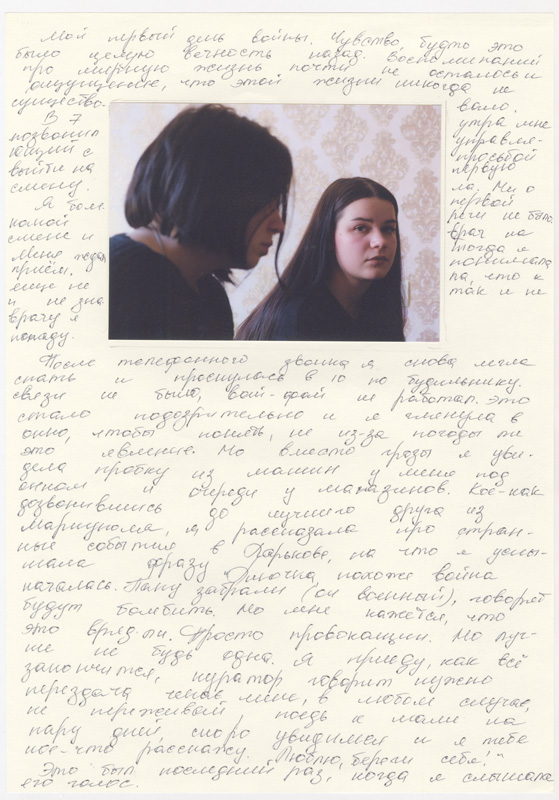 Мой первый день войны. Чувство, будто это
было целую вечность назад. Воспоминаний
про мирную жизнь почти не осталось и
ощущение, что этой жизни никогда не
существовало.
В 7 утра мне
позвонил управля-
ющий с просьбой
выйти на первую
смену.
Я бол ла. Ни о
какой первой
смене и речи не было.
Меня ждал врач на
приём. тогда я
еще не понимала
и не зна ла, что к
врачу я так и не
попаду.
После телефонного звонка я снова легла
спать и проснулась в 10 по будильнику.
Связи не было, вай-фай не работал. Это
стало подозрительно и я глянула в
окно, чтобы понять, не из-за погоды ли
это явление. Но вместо грозы я уви-
дела пробку из машин у меня под
окном и очереди у магазинов. Кое-как
дозвонившись до лучшего друга из
Мариуполя, я рассказала про стран-
ные события в Харькове, на что я услы-
шала фразу похоже война
началась. Папу забрали (он военный), говорят
будут бомбить. Но мне кажется, что
это вряд-ли. Просто провокации. Но луч-
ше не будь одна. Я приеду, как всё
закончится, куратор говорит нужно
пересдача ченая мне, в любом случае,
не переживай, поедь к маме на
пару дней, скоро увидимся и я тебе
кое-что расскажу. Люблю, береги себя!"
Это был последний раз, когда я слышала
его голос.